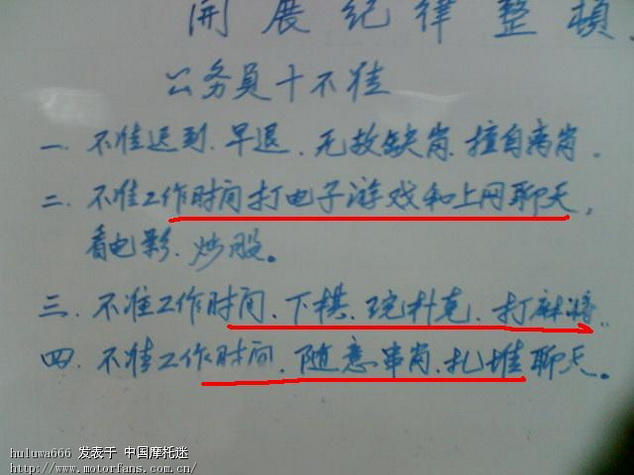 開展纪律整頓
公务員十不准
一. 不准迟到. 早退. 无故缺岗. 擅自离岗.
二. 不准工作时间打电子游戏和上网聊天,
看电影. 炒股。
三. 不准工作时间. 下棋. 玩扑克. 打麻将.
四. 不准工作时间. 随意串岗. 扎堆聊天。
huluwa666 发表于 中国摩托迷
http://www.motorfans.com.cn/